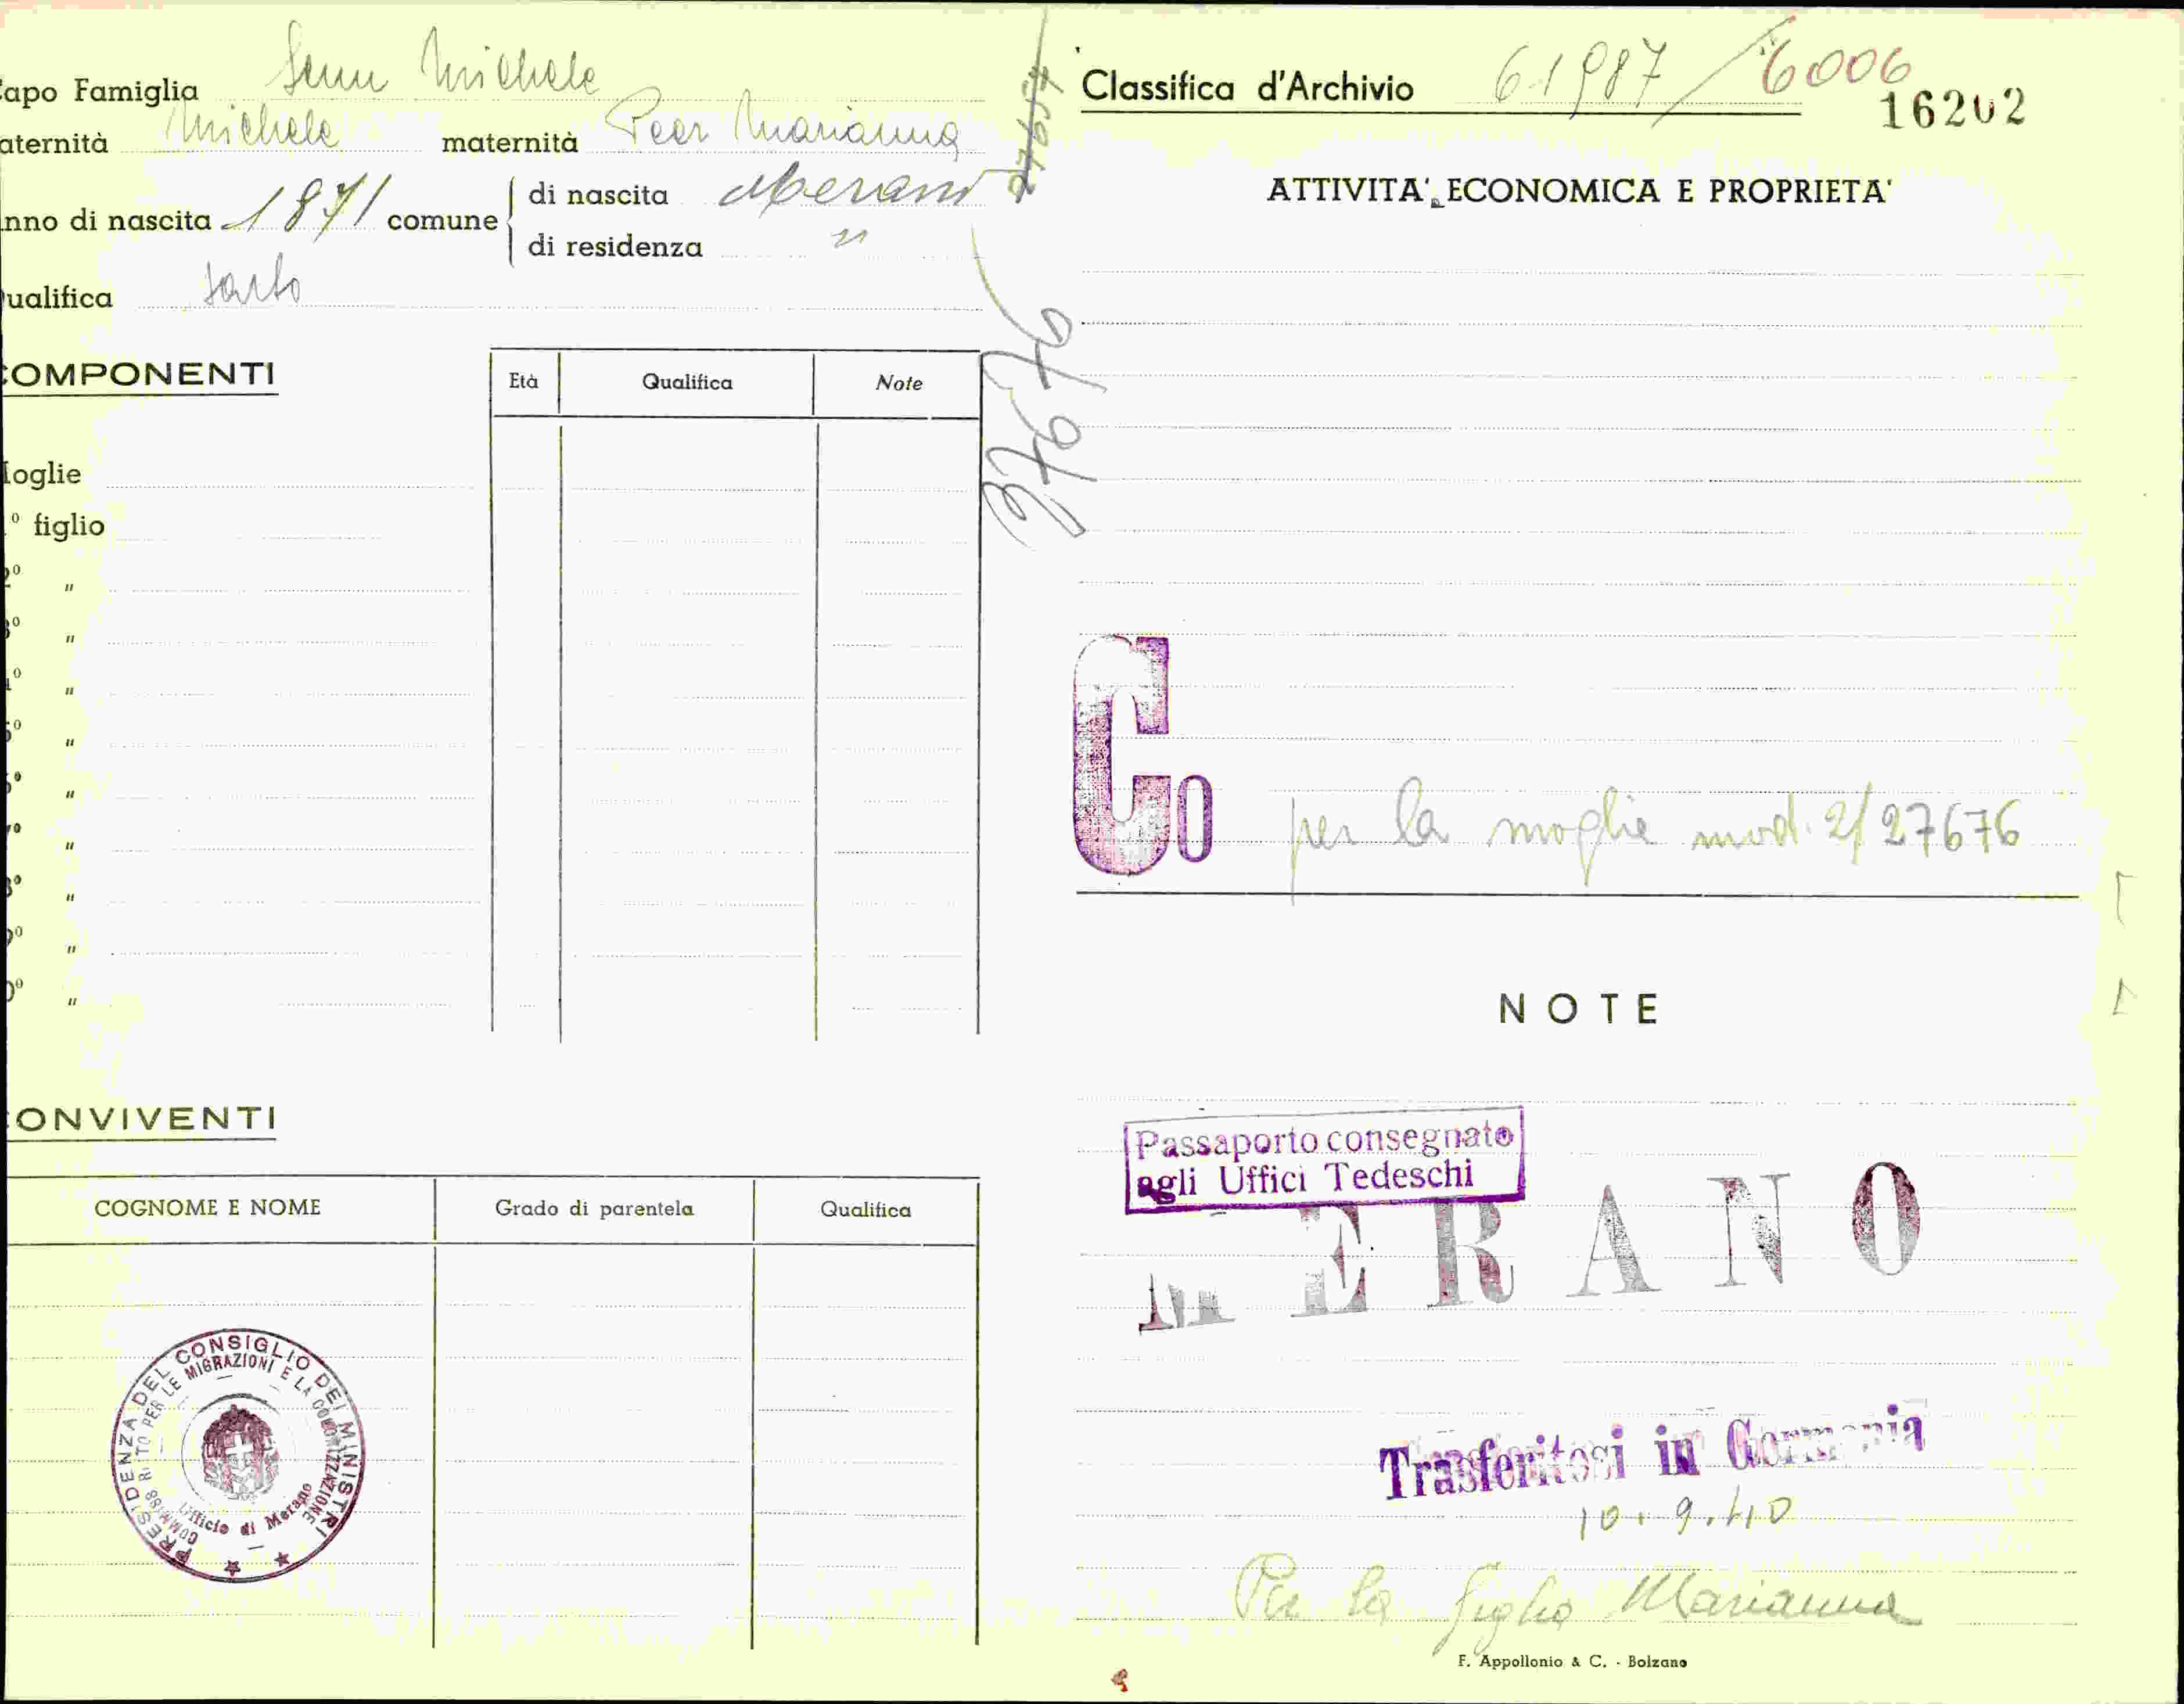 apo Famiglia Senn Michele
aternità Michele maternità Peer Marianna
nno di nascita 1871 comune di nascita Merano
di residenza "
ualifica sarto
27654
27676
OMPONENTI
Età Qualifica Note
oglie
º figlio
2º "
3º "
4º "
5º "
6º "
7º "
8º "
9º "
0º "
ONVIVENTI
COGNOME E NOME Grado di parentela Qualifica
PRESIDENZA DEL CONSIGLIO DEI MINISTRI
COMMISS RITTO PER LE MIGRAZIONI E LA COLONIZZAZIONE
Ufficio di Merano
Classifica d'Archivio 61987/6006
16202
ATTIVITA' ECONOMICA E PROPRIETA'
Co per la moglie mod. 2/27676
NOTE
Passaporto consegnato
agli Uffici Tedeschi
MERANO
Trasferitosi in Germania
10.9.40
Per la figlia Marianna
F. Appollonio & C. - Bolzano